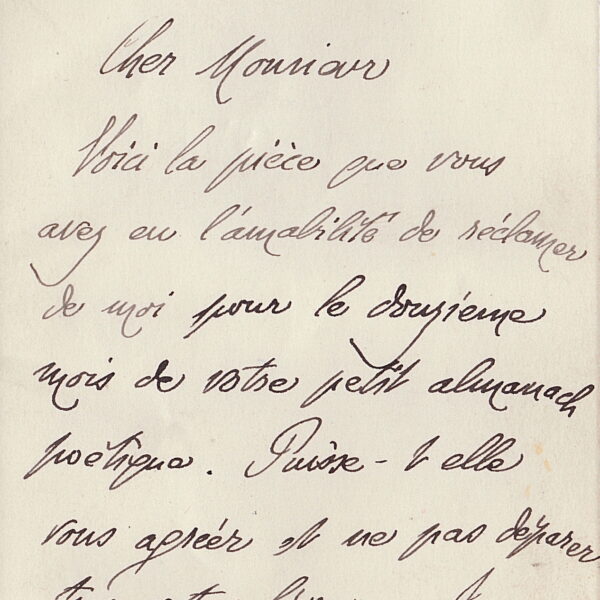 Cher Monsieur
Voici la pièce que vous
avez eu l'amabilité de réclamer
de moi pour le douzième
mois de votre petit almanach
poëtique. Puisse-t elle
vous agréer et ne pas déparer